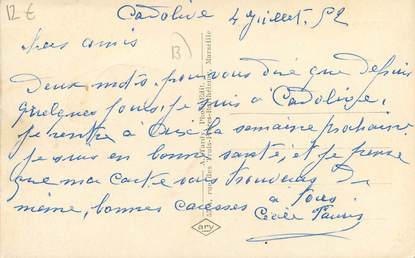 12 €
Cadolive 4 Juillet. 52
Mes amis
13
Deux mots, pour vous dire que depuis
quelques jours, je suis à Cadolive,
je rentre à la semaine prochaine
je suis en bonne santé, et je pense
que ma carte vous trouvera de
même, bonnes caresses à tous
Cécile
ary